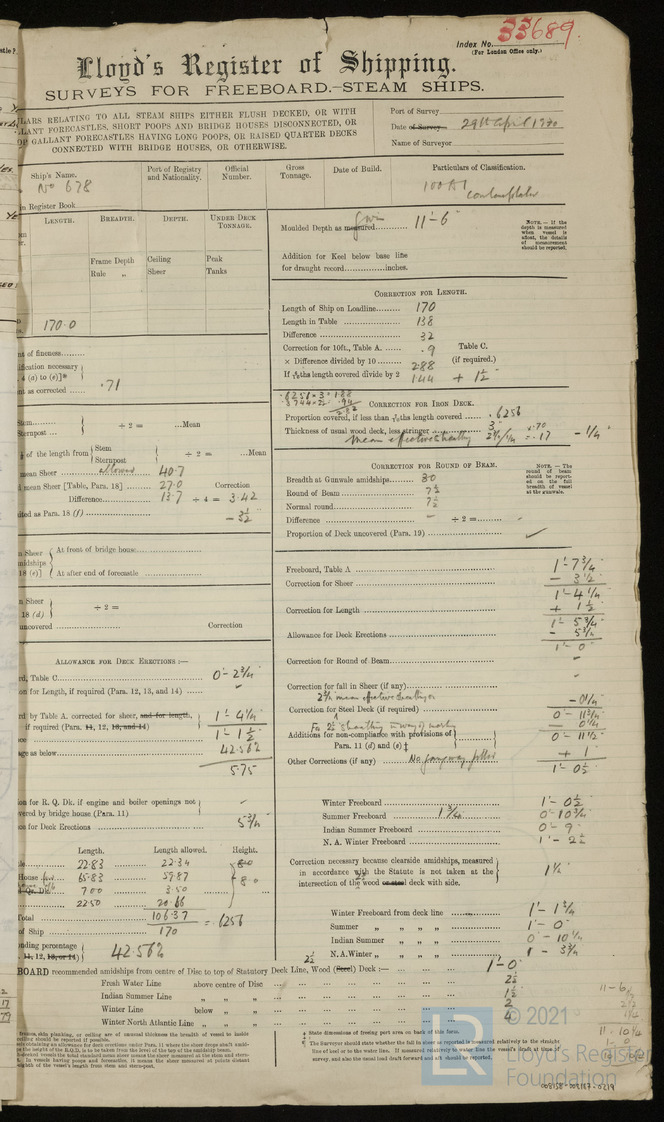 Index No. 33689.
(For London Office only.)
Lloyd's Register of Shipping.
SURVEYS FOR FREEBOARD.—STEAM SHIPS.
LARS RELATING TO ALL STEAM SHIPS EITHER FLUSH DECKED, OR WITH
LANT FORECASTLES, SHORT POOPS AND BRIDGE HOUSES DISCONNECTED, OR
GALLANT FORECASTLES HAVING LONG POOPS, OR RAISED QUARTER DECKS
CONNECTED WITH BRIDGE HOUSES, OR OTHERWISE.
Port of Survey
Date of Survey 29th April 19
Name of Surveyor
Ship's Name.
No 678
Port of Registry and Nationality.
Official Number.
Gross Tonnage.
Date of Build.
Particulars of Classification.
100 A1
in Register Book
LENGTH. BREADTH. DEPTH. UNDER DECK TONNAGE.
Frame Depth Ceiling Peak
Rule „ Sheer Tanks
170.0
nt of fineness
ification necessary
4 (a) to (e)]*
nt as corrected .71
Stem
Sternpost ÷ 2 = Mean
⅛ of the length from Stem Sternpost ÷ 2 = Mean
mean Sheer allowed 40.7
mean Sheer [Table, Para. 18] 27.0 Correction
Difference 13.7 ÷ 4 = 3.42
ited as Para. 18 (f) − 3½
n Sheer
midships
18 (e)] At front of bridge house
At after end of forecastle
n Sheer
18 (d) ÷ 2 =
uncovered Correction
ALLOWANCE FOR DECK ERECTIONS:—
rd, Table C 0'- 2¾"
on for Length, if required (Para. 12, 13, and 14)
rd by Table A. corrected for sheer, and for length,
if required (Para. 11, 12, 13, and 14) 1'- 4¼
1'- 1½
age as below 42.562
5.75
on for R. Q. Dk. if engine and boiler openings not
vered by bridge house (Para. 11)
ce for Deck Erections 5¾"
Length. Length allowed. Height.
22.83 22.34 8.0
House 65.83 59.87 8.0
7.00 3.50
22.50 20.66
Total 106.37 = .6256
of Ship 170
nding percentage
11, 12, 13, or 14) 42.562
Moulded Depth as measured given 11'-6"
NOTE.—If the depth is measured when vessel is afloat, the details of measurement should be reported.
Addition for Keel below base line
for draught record inches.
CORRECTION FOR LENGTH.
Length of Ship on Loadline 170
Length in Table 138
Difference 32
Correction for 10ft., Table A. .9 Table C.
× Difference divided by 10 2.88 (if required.)
If 6/10ths length covered divide by 2 1.44 + 1½
CORRECTION FOR IRON DECK.
Proportion covered, if less than 7/10ths length covered .6256
Thickness of usual wood deck, less stringer 3
mean effective sheathing = .17 − ¼"
CORRECTION FOR ROUND OF BEAM.
Breadth at Gunwale amidships 30
Round of Beam 7½
Normal round 7½
Difference ÷ 2 =
Proportion of Deck uncovered (Para. 19)
NOTE.—The round of beam should be reported on the full breadth of vessel at the gunwale.
Freeboard, Table A 1'- 7¾"
Correction for Sheer − 3½"
1'- 4¼"
Correction for Length + 1½
1'- 5¾"
Allowance for Deck Erections − 5¾"
1'- 0"
Correction for Round of Beam
Correction for fall in Sheer (if any)
mean effective sheathing
Correction for Steel Deck (if required) − 0¼"
0'- 11¾"
For 2½ sheathing in way of
Additions for non-compliance with provisions of
Para. 11 (d) and (e)‡ 0'- 11½
Other Corrections (if any) No gangway fitted + 1
1'- 0½
Winter Freeboard 1'- 0½
Summer Freeboard 1¾" 0'- 10¾"
Indian Summer Freeboard 0'- 9
N. A. Winter Freeboard 1'- 2½
Correction necessary because clearside amidships, measured
in accordance with the Statute is not taken at the
intersection of the wood or steel deck with side. 1¼
Winter Freeboard from deck line 1'- 1¾
Summer „ „ „ „ 1'- 0
Indian Summer „ „ „ 0'- 10¼
N.A. Winter „ „ „ „ 1 - 3¾
BOARD recommended amidships from centre of Disc to top of Statutory Deck Line, Wood (Steel) Deck :— 1'-0"
Fresh Water Line above centre of Disc 2½
Indian Summer Line „ „ 1½
Winter Line below „ 2
Winter North Atlantic Line „ „
‡ State dimensions of freeing port area on back of this form.
¶ The Surveyor should state whether the fall in sheer is reported as measured relatively to the straight
line of keel or to the water line.
© 2021
LR
Lloyd's Register
Foundation
008158-009187-0219